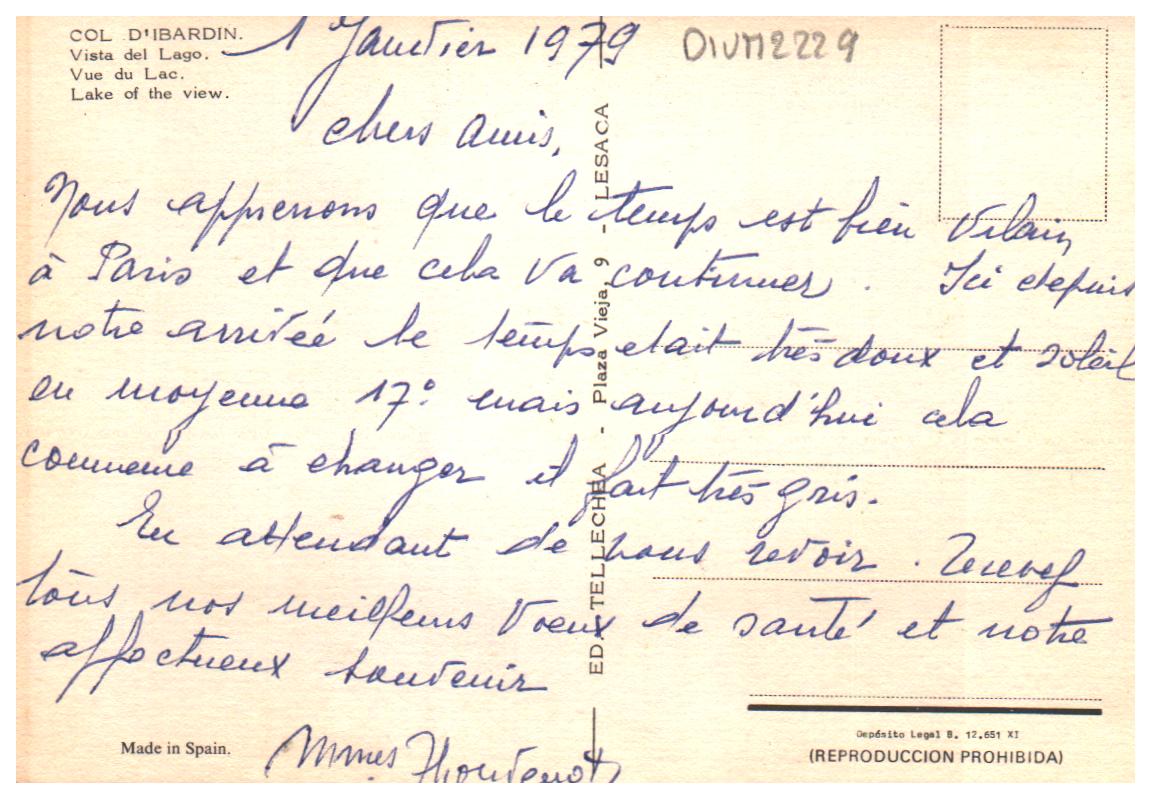 COL D'IBARDIN.
Vista del Lago.
Vue du Lac.
Lake of the view.
1 Janvier 1979
DIVM2229
chers amis,
Nous apprenons que le temps est bien vilain
à Paris et que cela va continuer. Ici depuis
notre arrivée le temps etait très doux et soleil
en moyenne 17° mais aujourd'hui cela
commence à changer il fait très gris.
En attendant de vous revoir. Recevez
tous nos meilleurs Voeux de santé et notre
affectueux souvenir
Mmes
ED. TELLECHEA - Plaza Vieja, 9 - LESACA
Made in Spain.
Depósito Legal B. 12.651 XI
(REPRODUCCION PROHIBIDA)